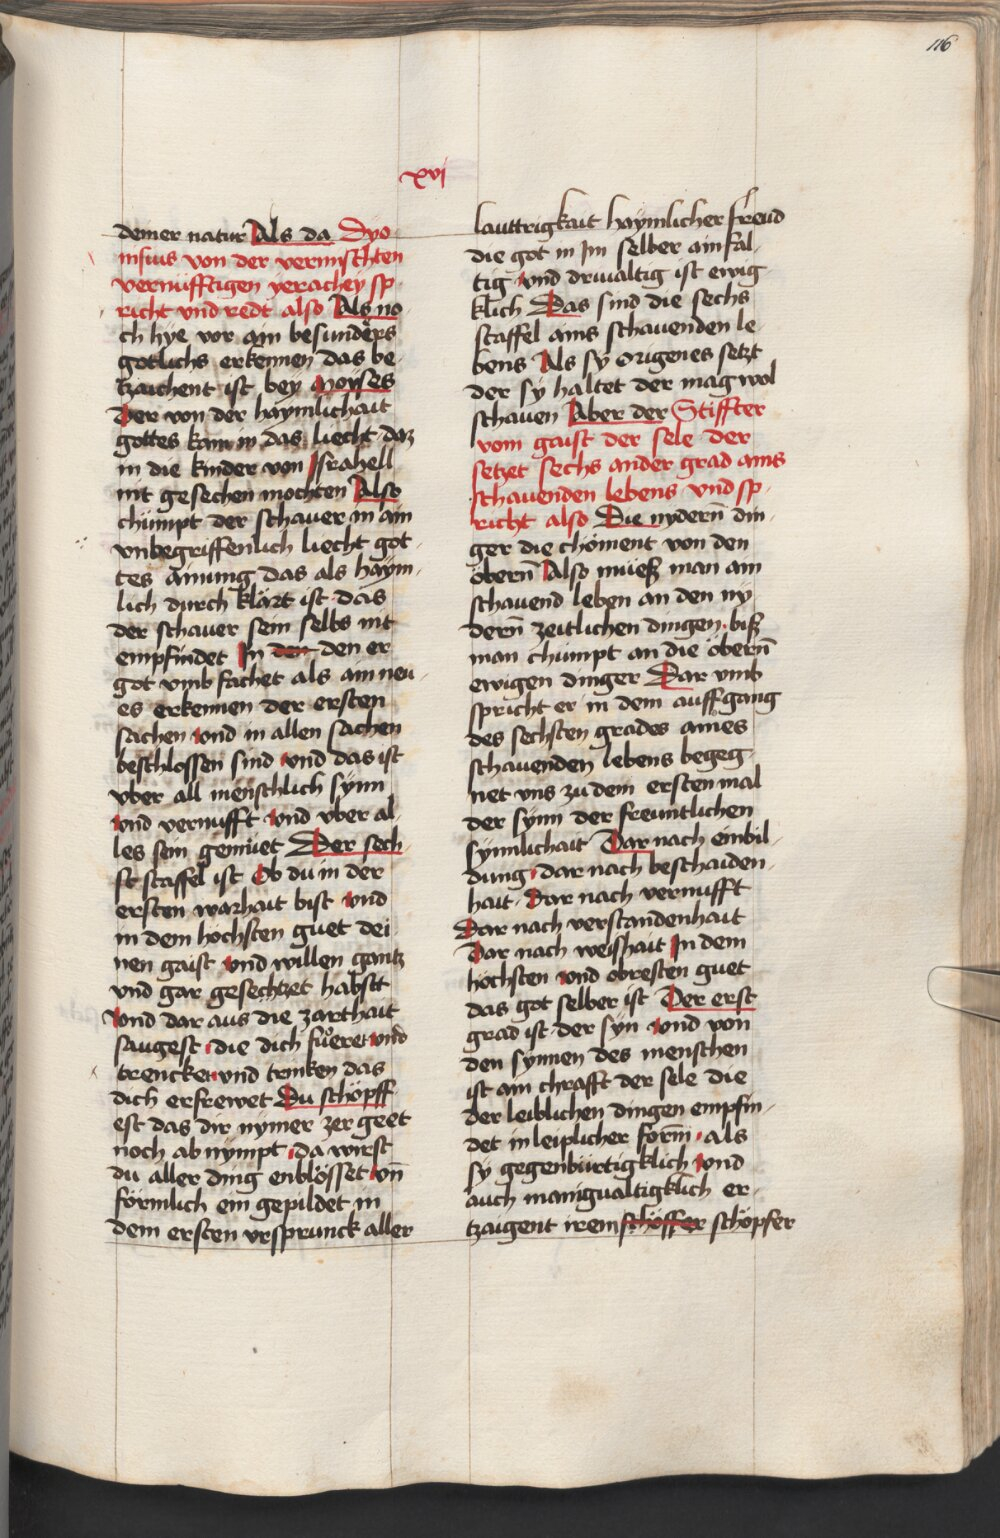 116
xvi
deiner natur Als da Dyo
nisius von der vermischten
vernüfftigen yerachey sp
richt vnd redt also Als no
ch hye vor ain besunders
gotlichs erkennen das be
tzaichent ist bey Moyses
Der von der haymlichait
gottes kam in das liecht daz
in die kinder von Israhell
nit gesechen mochten Also
chümpt der schauer in ain
vnbegriffenlich liecht got
tes ainung das als haym
lich durch klärt ist das
der schauer sein selbs nit
empfindet In den den er
got vmb fachet als ain neu
es erkennen der ersten
sachen vnd in allen sachen
beschlossen sind vnd das ist
vber all menschlich synn
vnd vernufft vnd vber al
les sein gemüet Der sech
st staffel ist Ob du in der
ersten warhait bist vnd
in dem höchsten guet dei
nen gaist vnd willen gantz
vnd gar gesechtzet habstt
vnd dar aus die zarthait
saugest die dich fueret vnd
trencket vnd trinken das
dich erfrewet Du schöpff
est das dir nymer zer geet
noch ab nympt da wirst
du aller ding enblösset vn̄
förmlich ein gepildet in
dem ersten vrsprunck aller
lauttrigkait haymlicher freud
die got in Im selber ainfal
tig vnd driualtig ist ewig
klich Das sind die sechs
staffel ains schauenden le
bens Als sy origenes setzt
der sy haltet der mag wol
schauen Aber der Stiffter
vom gaist der sele der
setzet sechs ander grad ains
schauenden lebens vnd sp
richt also Die nydern̄ din
ger die chöment von den
obern̄ Also muesz man ain
schauend leben an den ny
dern̄ zeitlichen dingen bisz
man chümpt an die öbern̄
ewigen dinger Dar vmb
spricht er in dem auffgang
des sechsten grades aines
schauenden lebens begeg
net vns zu dem ersten mal
der synn der freuntlichen
synnlichait Dar nach einbil
dung dar nach beschaiden
hait Dar nach vernufft
Dar nach verstandenhait
Dar nach weishait In dem
höchsten vnd obresten guet
das got selber ist Der erst
grad ist der syn vnd von
den synnen des menschen
ist ain chrafft der sele die
der leiblichen dingen empfin
det in leiplicher form̄ als
sy gegenbürtigklich vnd
auch manigualtigklich er
tzaigent irem schöffer schöpfer